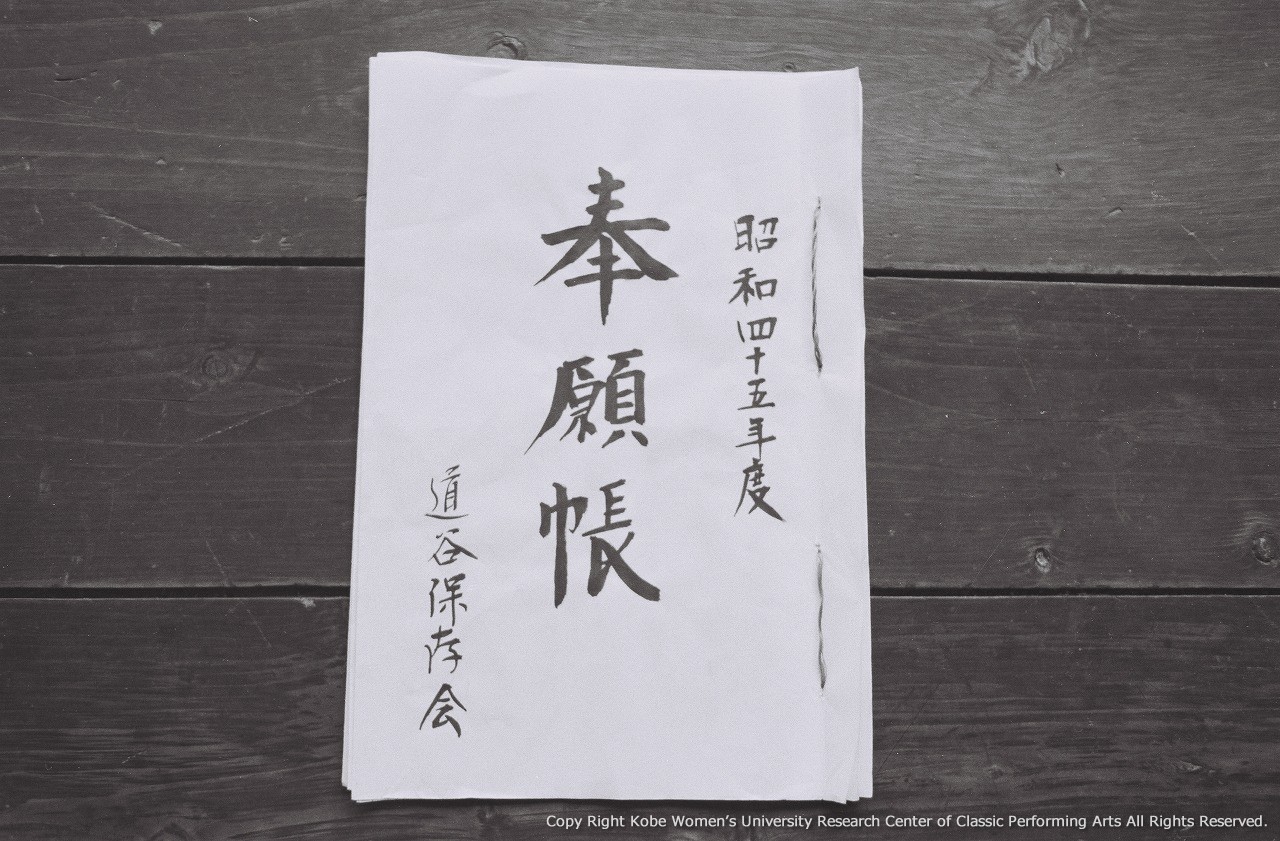 昭和四十五年度
奉願帳
道谷保存会
Copy Right Kobe Women's University Research Center of Classic Performing Arts All Rights Reserved.